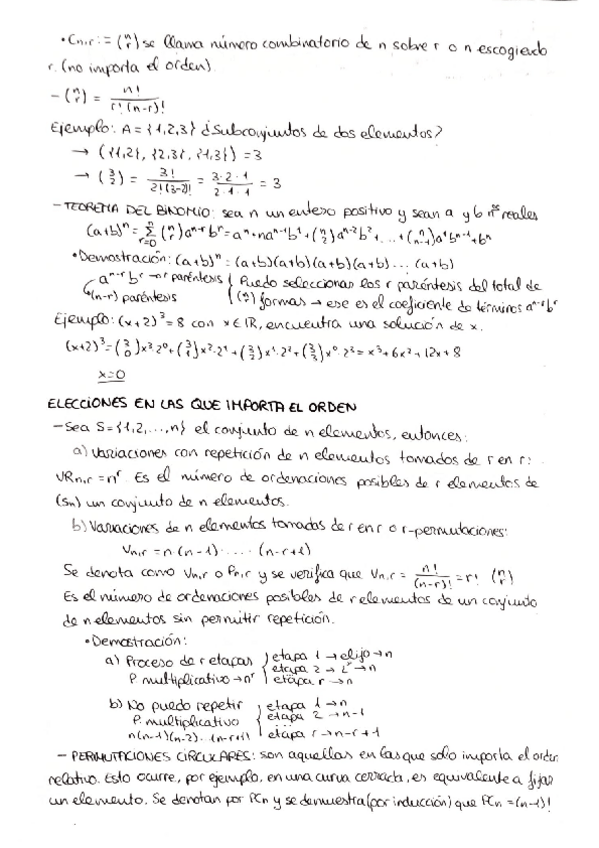 • Cn,r := (n r) se llama número combinatorio de n sobre r o n escogiendo
r. (no importa el orden)
- (n r) = n! / r!(n-r)!
Ejemplo: A = {1,2,3} ¿Subconjuntos de dos elementos?
→ ({1,2}, {2,3}, {1,3}) = 3
→ (3 2) = 3! / 2!(3-2)! = 3·2·1 / 2·1·1 = 3
- TEOREMA DEL BINOMIO: sea n un entero positivo y sean a y b nºs reales
(a+b)ⁿ = Σ(r=0, n) (n r) aⁿ⁻ʳbʳ = aⁿ + naⁿ⁻¹b¹ + (n 2) aⁿ⁻²b² + ... + (n n-1) a¹bⁿ⁻¹ + bⁿ
• Demostración: (a+b)ⁿ = (a+b)(a+b)(a+b)(a+b)... (a+b)
aⁿ⁻ʳbʳ → r paréntesis { Puedo seleccionar los r paréntesis del total de
(n-r) paréntesis (n r) formas → ese es el coeficiente de términos aⁿ⁻ʳbʳ
Ejemplo: (x+2)³ = 8 con x ∈ ℝ, encuentra una solución de x.
(x+2)³ = (3 0) x³·2⁰ + (3 1) x²·2¹ + (3 2) x¹·2² + (3 3) x⁰·2³ = x³ + 6x² + 12x + 8
x = 0
ELECCIONES EN LAS QUE IMPORTA EL ORDEN
- Sea S = {1,2,...,n} el conjunto de n elementos, entonces:
a) Variaciones con repetición de n elementos tomados de r en r:
VRn,r = nʳ. Es el número de ordenaciones posibles de r elementos de
(Sn) un conjunto de n elementos.
b) Variaciones de n elementos tomados de r en r o r-permutaciones:
Vn,r = n·(n-1)· ... ·(n-r+1)
Se denota como Vn,r o Pn,r y se verifica que Vn,r = n! / (n-r)! = r! (n r)
Es el número de ordenaciones posibles de r elementos de un conjunto
de n elementos sin permitir repetición.
• Demostración:
a) Proceso de r etapas { etapa 1 → elijo → n
P. multiplicativo → nʳ etapa 2 → → n
etapa r → n
b) No puedo repetir { etapa 1 → n
P. multiplicativo etapa 2 → n-1
n(n-1)(n-2)...(n-r+1) etapa r → n-r+1
- PERMUTACIONES CIRCULARES: son aquellas en las que solo importa el orden
relativo. Esto ocurre, por ejemplo, en una curva cerrada, es equivalente a fijar
un elemento. Se denotan por PCn y se demuestra (por inducción) que PCn = (n-1)!